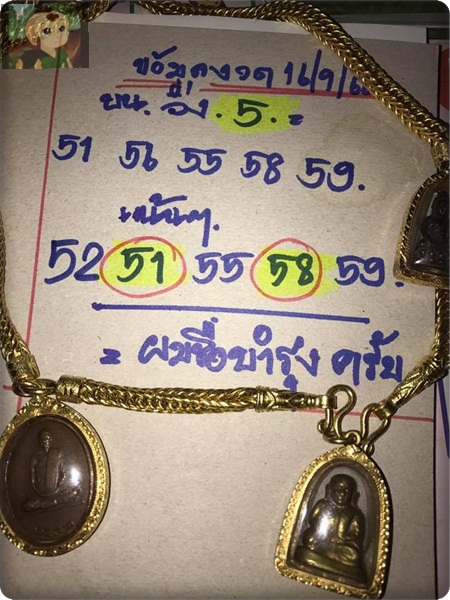 ข้อมูลงวด 16/9/6
บน. วิ่ง. 5. =
51 56 55 58 59.
เน้นๆ.
52 51 55 58 59.
= ผมชื่อบำรุง ครับ